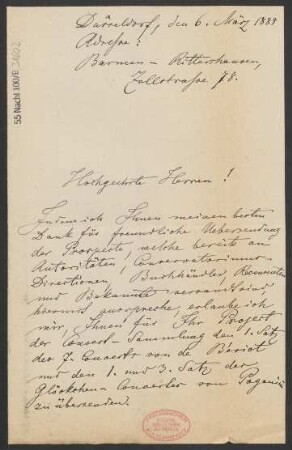 Düsseldorf, den 6. März 1889
Adresse:
Barmen-Rittershausen,
Zollstrasse 78.
Hochgeehrte Herren!
Indem ich Ihnen meinen besten
Dank für freundliche Uebersendung
der Prospecte, welche bereits an
Autoritäten, Conservatoriums-
Directionen, Buchhändler, Recensenten
und Bekannte versandt sind
hiermit ausspreche, erlaube ich
mir, Ihnen für Ihr Project
der Concert-Sammlung den 1. Satz
des 7. Concerts von de Bériot
und den 1. und 3. Satz des
Glöckchen-Concertes von Paganini
zu übersenden.
55 Nachl 100/E